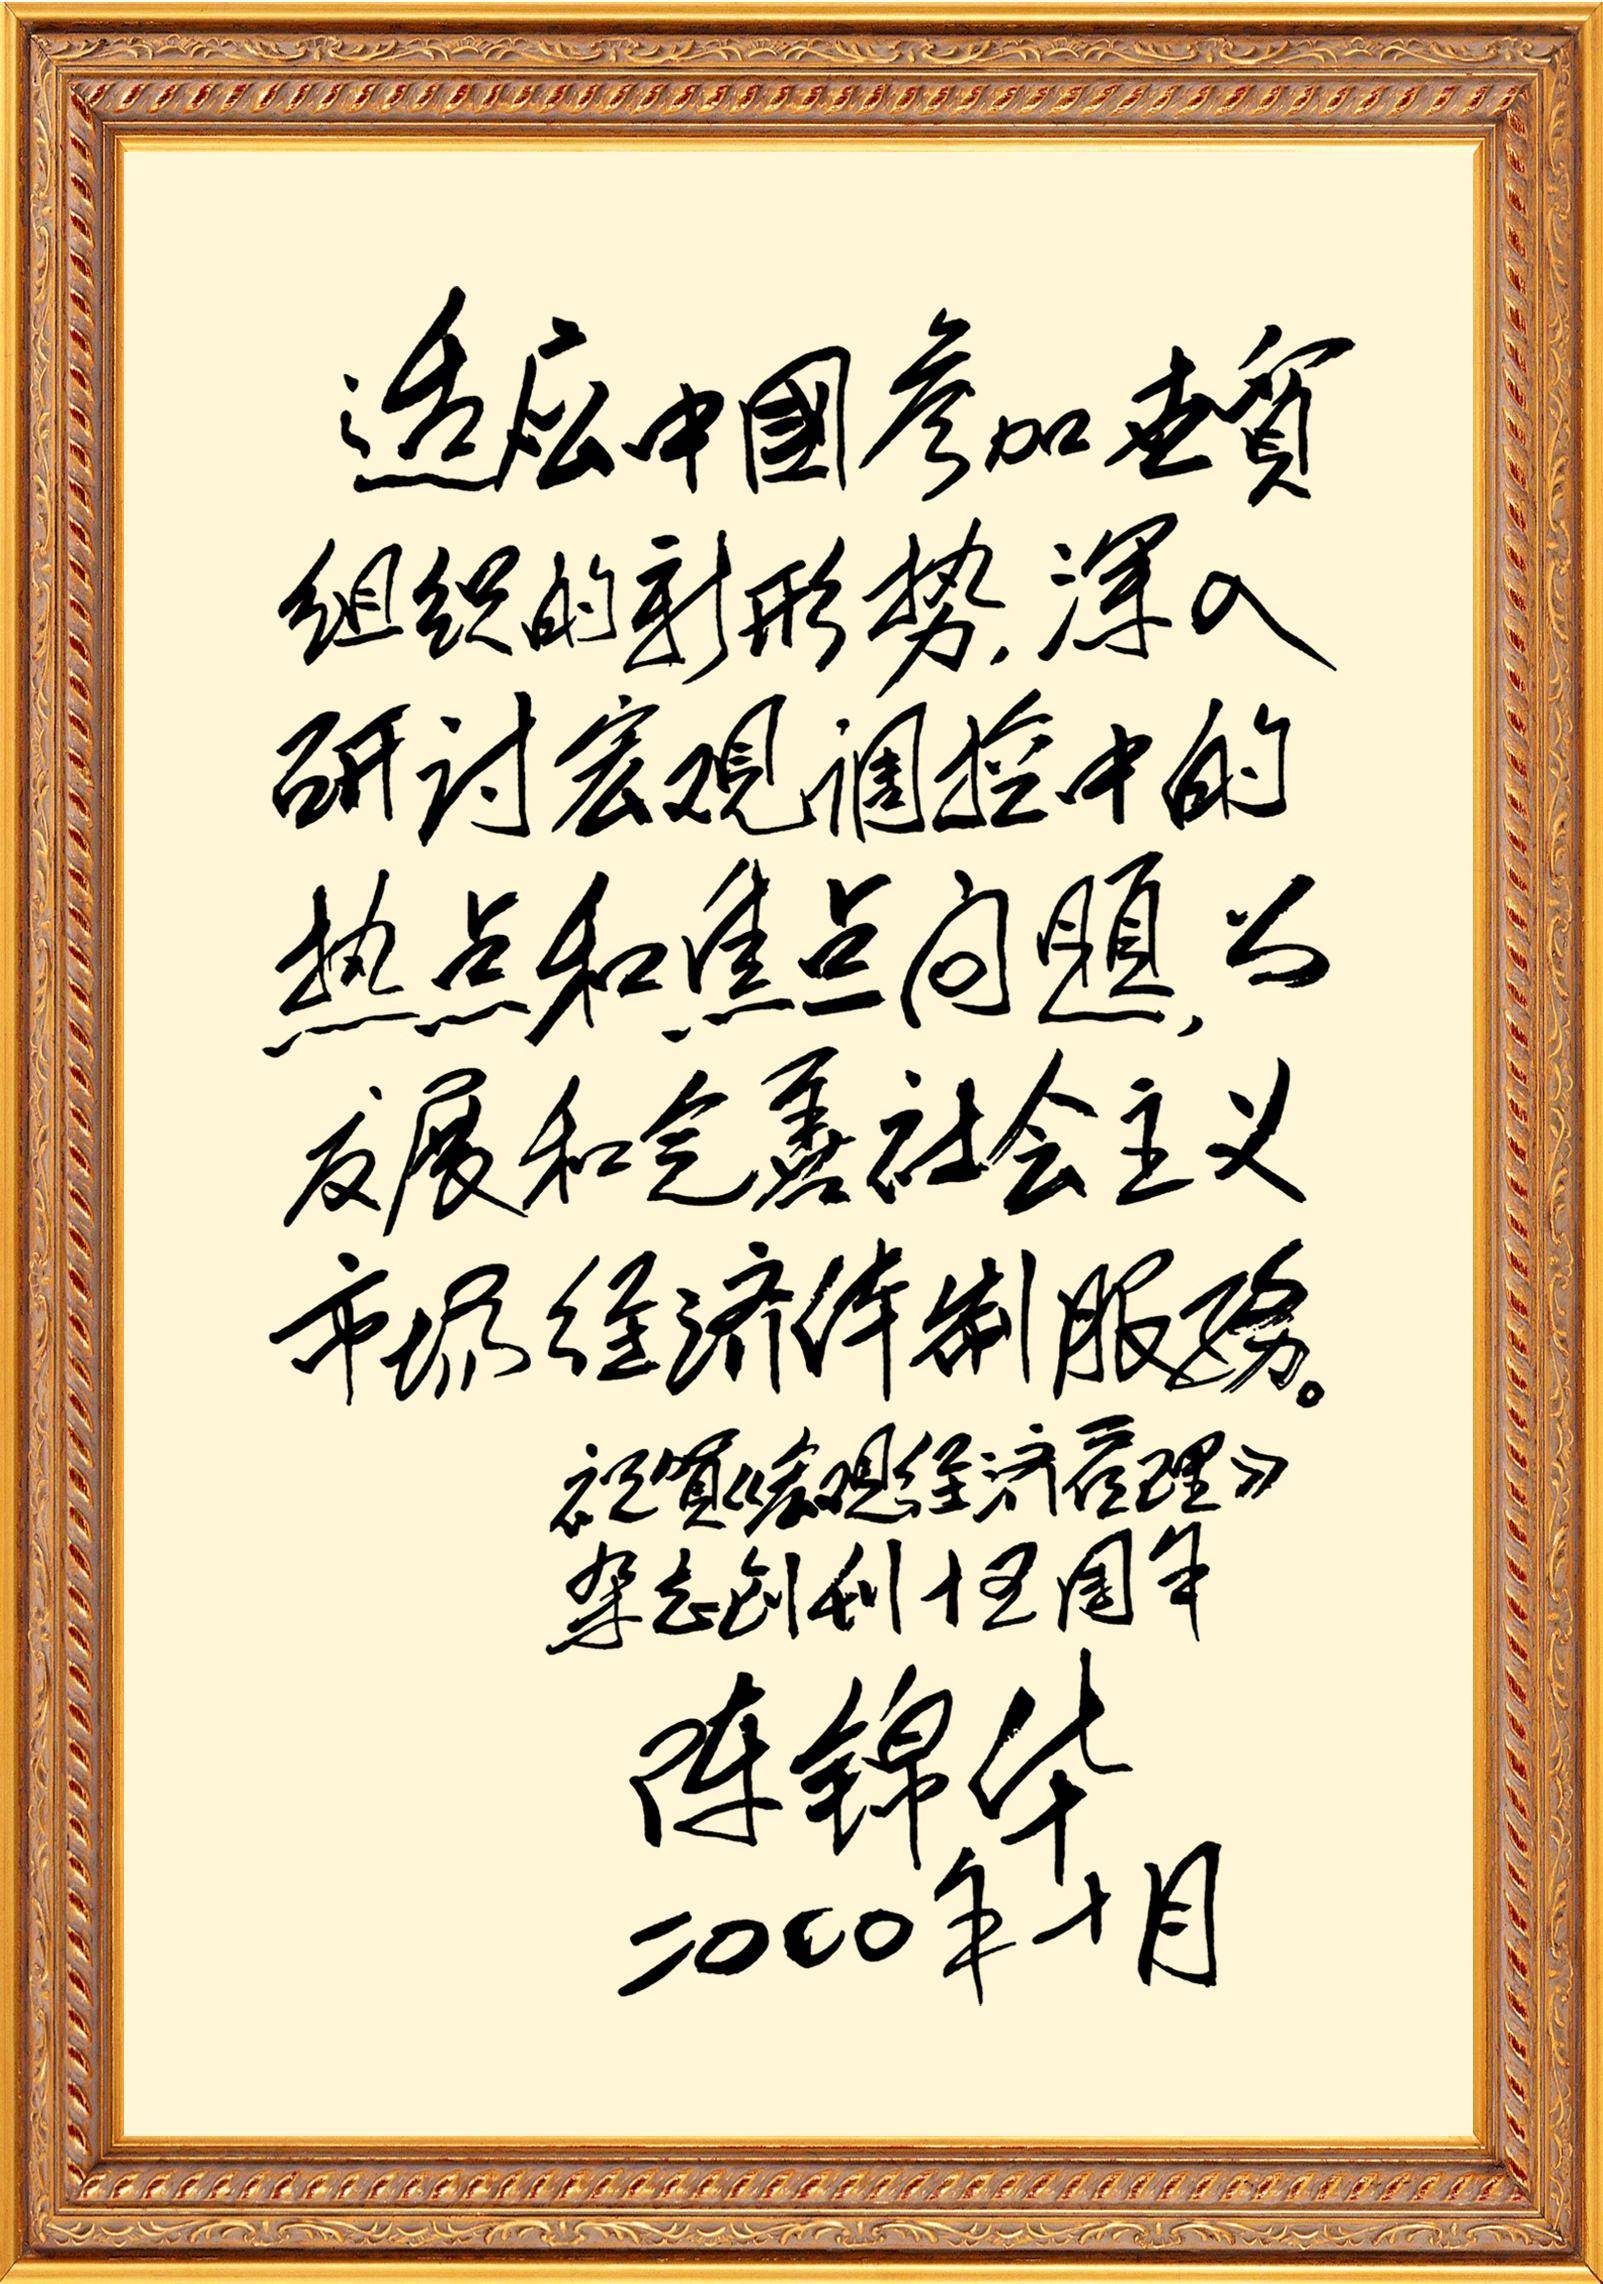 适应中國参加世貿
组织的新形势,深入
研讨宏观调控中的
热点和焦点问题,为
发展和完善社会主义
市场经济体制服务。
祝賀《宏观经济管理》
杂志创刊十五周年
陈锦华
二〇〇〇年十月